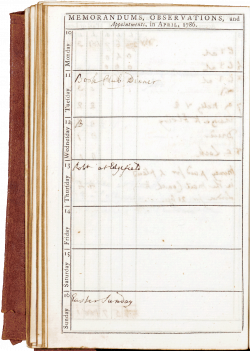 MEMORANDUMS, OBSERVATIONS, and
Appointments, in APRIL, 1786.
10 Monday
11 Tuesday
Book Club Dinner
12 Wednesday
13 Thursday
at Edgefield
14 Friday
15 Saturday
16 Sunday
Easter Sunday